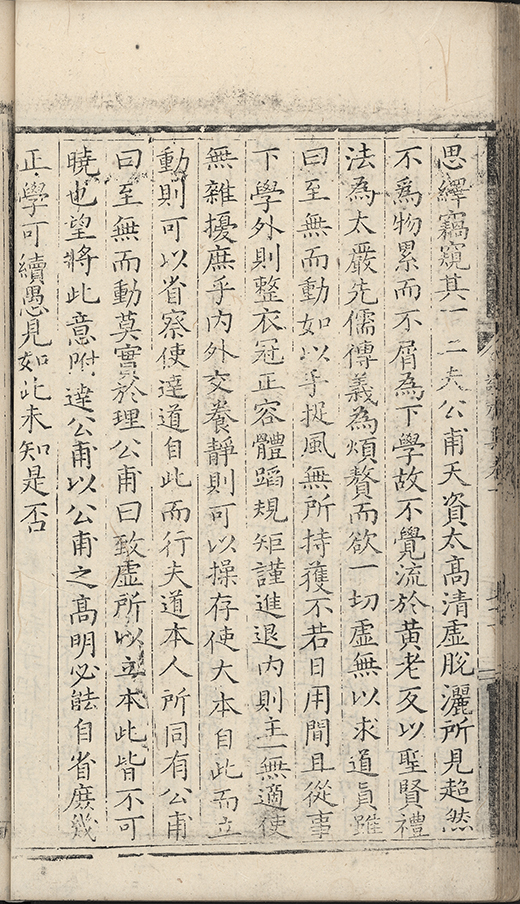 思繹竊窺其一二夫公甫天資太高清虛脫灑所見超然
不爲物累而不屑為下學故不覺流於黄老反以聖賢禮
法為太嚴先儒傳義為煩贅而欲一切虛無以求道眞雖
曰至無而動如以手捉風無所持獲不若日用間且從事
下學外則整衣冠正容體蹈規矩謹進退内則主一無適使
無雜擾庶乎内外交養靜則可以操存使大本自此而立
動則可以省察使達道自此而行夫道本人所同有公甫
曰至無而動莫實於理公甫曰致虛所以立本此皆不可
曉也望將此意附達公甫以公甫之高明必能自省庶幾
正學可續愚見如此未知是否